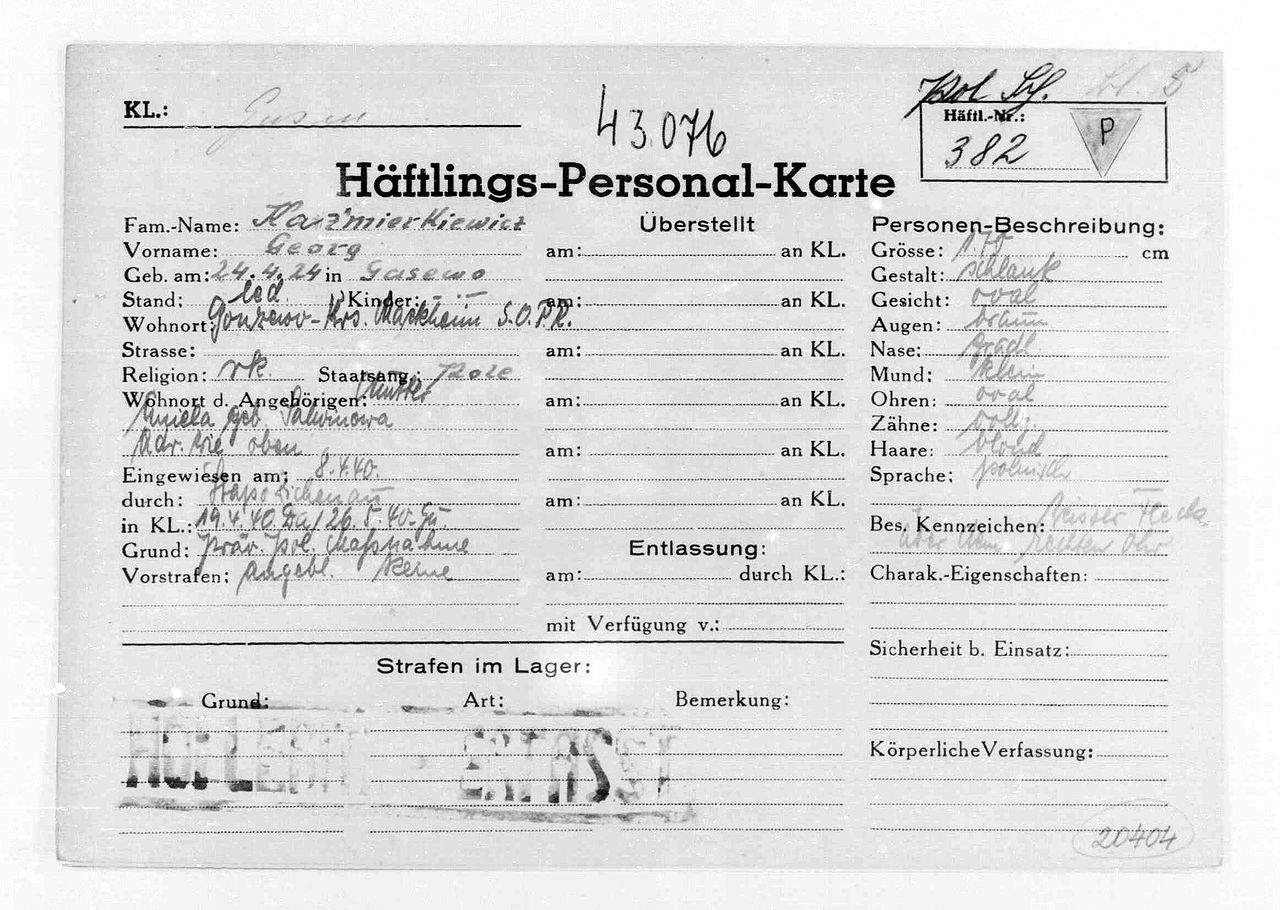 Pol Sch.
KL.: Gusen
43.076
Häftl.-Nr.:
382
P
Häftlings-Personal-Karte
Fam.-Name: Kazimierkiewicz
Vorname: Georg
Geb. am: 24.4.24 in Gasewo
Stand: led. Kinder: —
Wohnort: Krs. Mackheim S.O.P.R.
Strasse:
Religion: rk. Staatsang.: Pole
Wohnort d. Angehörigen: Mutter
geb.
Adr. wie oben
Eingewiesen am: 8.4.40.
durch: Stapo Zichenau
in KL.: 19.4.40 Da/26.5.40-Gu.
Grund: Präv. pol. Maßnahme
Vorstrafen: angebl. keine
Überstellt
am: an KL.
am: an KL.
am: an KL.
am: an KL.
am: an KL.
am: an KL.
Entlassung:
am: durch KL.:
mit Verfügung v.:
Personen-Beschreibung:
Grösse: 1.70 cm
Gestalt: schlank
Gesicht: oval
Augen: braun
Nase: gradl.
Mund: klein
Ohren: oval
Zähne: voll.
Haare: blond
Sprache: polnisch
Bes. Kennzeichen:
über dem rechten Ohr
Charak.-Eigenschaften:
Sicherheit b. Einsatz:
Körperliche Verfassung:
Strafen im Lager:
Grund: Art: Bemerkung:
HOLLERITH ERFASST
20404